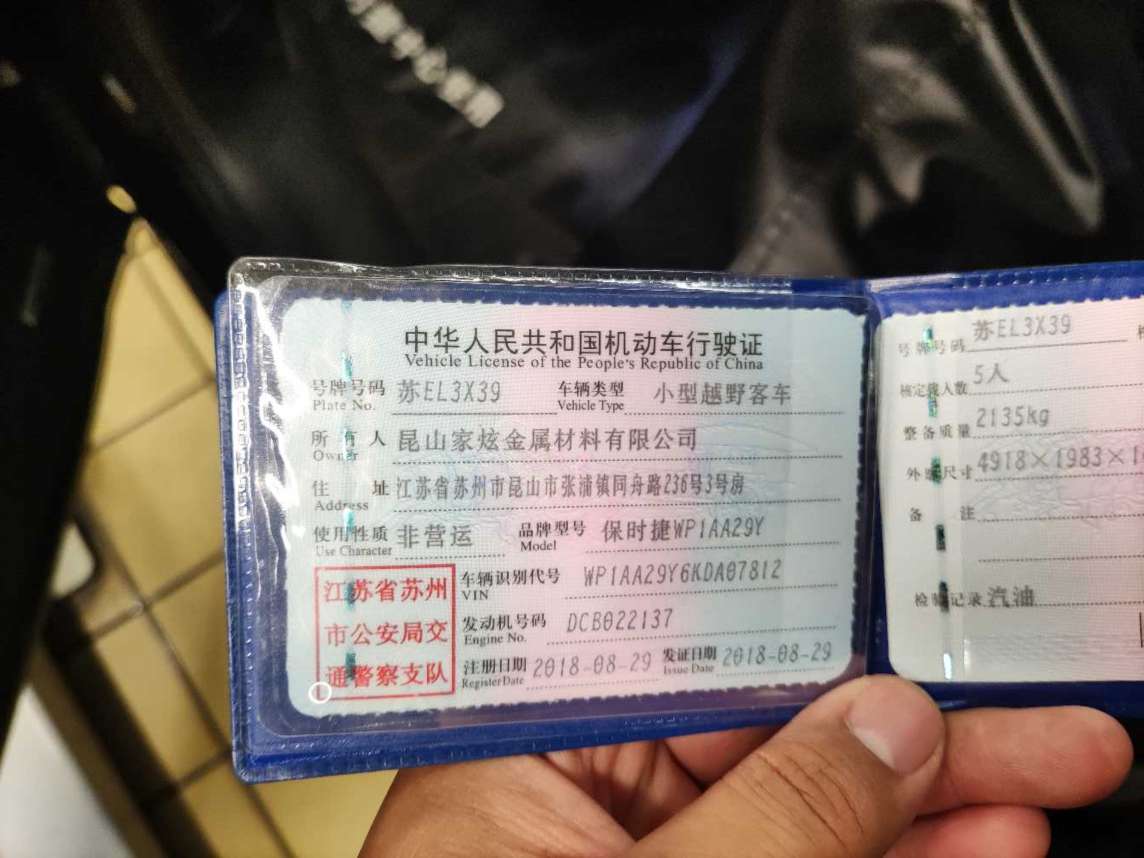 中华人民共和国机动车行驶证
Vehicle License of the People's Republic of China
号牌号码 苏EL3X39 车辆类型 小型越野客车
Plate No. Vehicle Type
所有人 昆山家炫金属材料有限公司
Owner
住址 江苏省苏州市昆山市张浦镇同舟路236号3号房
Address
使用性质 非营运 品牌型号 保时捷WP1AA29Y
Use Character Model
江苏省苏州
市公安局交
通警察支队
车辆识别代号 WP1AA29Y6KDA07812
VIN
发动机号码 DCB022137
Engine No.
注册日期 2018-08-29 发证日期 2018-08-29
Register Date Issue Date
号牌号码 苏EL3X39
核定载人数 5人
整备质量 2135kg
外廓尺寸 4918×1983×1
备注
检验记录 汽油